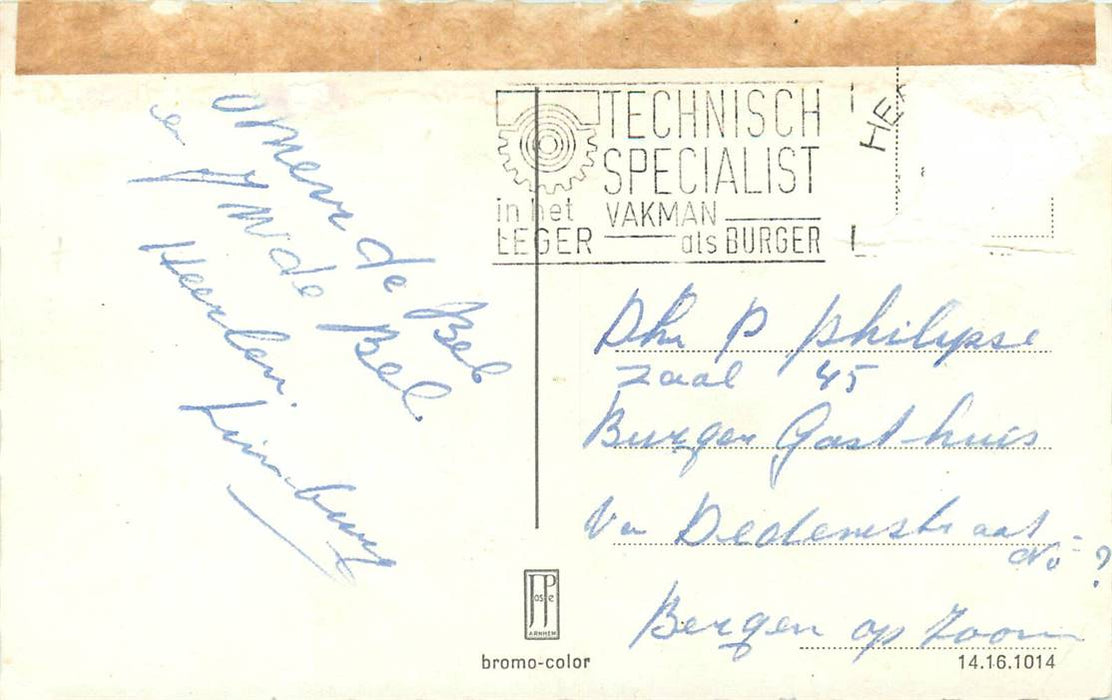 Omer de Bel
en J W de Bel.
Heerlen.
Limburg
TECHNISCH
SPECIALIST
in het VAKMAN
LEGER als BURGER
HE
Dhr P Philipse
Zaal 45
Burger Gasthuis
Van Dedemstraat
No ?
Bergen op Zoom
JosPe
ARNHEM
bromo-color
14.16.1014